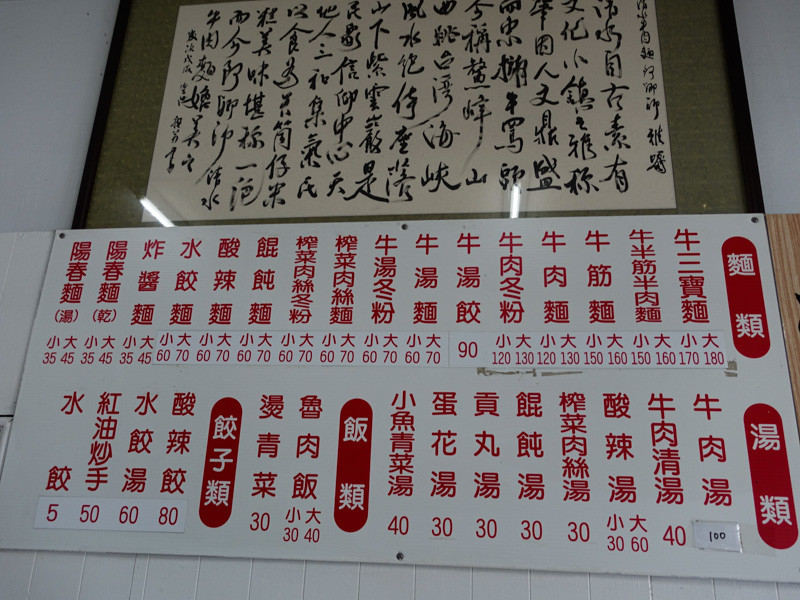 清水自古素有
文化小鎮之雅稱
因人文鼎盛
而東擁牛罵頭
今稱鰲峰山
西眺台灣海峽
山下紫雲巖是
民眾信仰中心天
筒仔米
糕美味堪稱一絕
麵類
牛三寶麵 小170 大180
牛半筋半肉麵 小150 大160
牛筋麵 小150 大160
牛肉麵 小120 大130
牛肉冬粉 小120 大130
牛湯餃 90
牛湯麵 小60 大70
牛湯冬粉 小60 大70
榨菜肉絲麵 小60 大70
榨菜肉絲冬粉 小60 大70
餛飩麵 小60 大70
酸辣麵 小60 大70
水餃麵 小60 大70
炸醬麵 小35 大45
陽春麵(乾) 小35 大45
陽春麵(湯) 小35 大45
湯類
牛肉湯 100
牛肉清湯 40
酸辣湯 小30 大60
榨菜肉絲湯 30
餛飩湯 30
貢丸湯 30
蛋花湯 30
小魚青菜湯 40
飯類
魯肉飯 小30 大40
燙青菜 30
餃子類
酸辣餃 80
水餃湯 60
紅油炒手 50
水餃 5